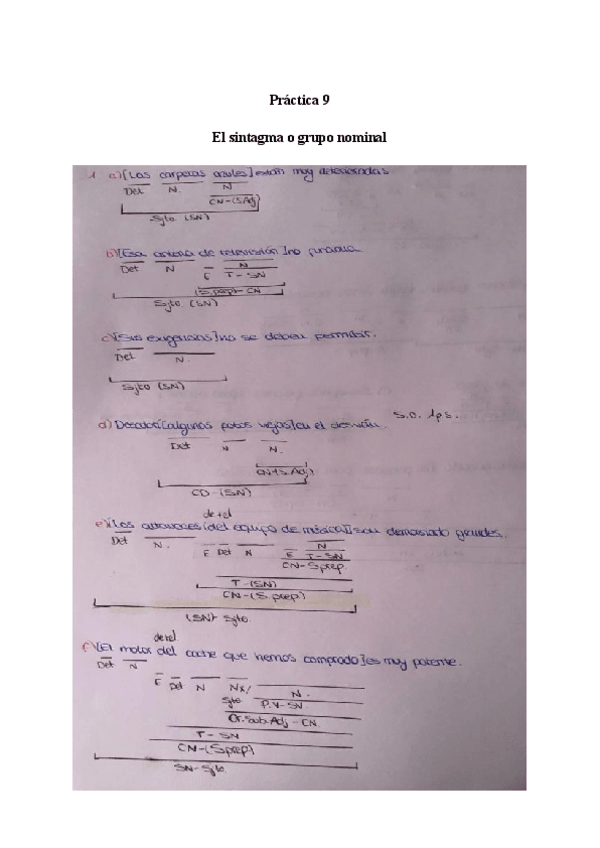 Práctica 9
El sintagma o grupo nominal
1. a) [Las carpetas azules] están muy deterioradas
Det N. N
CN-(S.Adj)
Sjto (SN)
b) [Esa antena de televisión] no funciona
Det N E N
T-SN
(S.prep)-CN
Sjto (SN)
c) [Sus exigencias] no se deben permitir.
Det N.
Sjto (SN)
S.O. 1ps.
d) Descubrí [algunas fotos viejas] en el desván.
Det N N.
CN-(S.Adj)
CD-(SN)
de+el
e) [Los altavoces (del equipo de música)] son demasiado grandes.
Det N. E Det N E N
T-SN
CN-Sprep
T-(SN)
CN-(S.prep)
(SN)-Sjto.
de+el
f) [El motor del coche que hemos comprado] es muy potente.
Det N
E Det N Nx/ N.
Sjto P.V-SV
Or.Sub.Adj-CN.
T-SN
CN-(Sprep)
SN-Sjto.